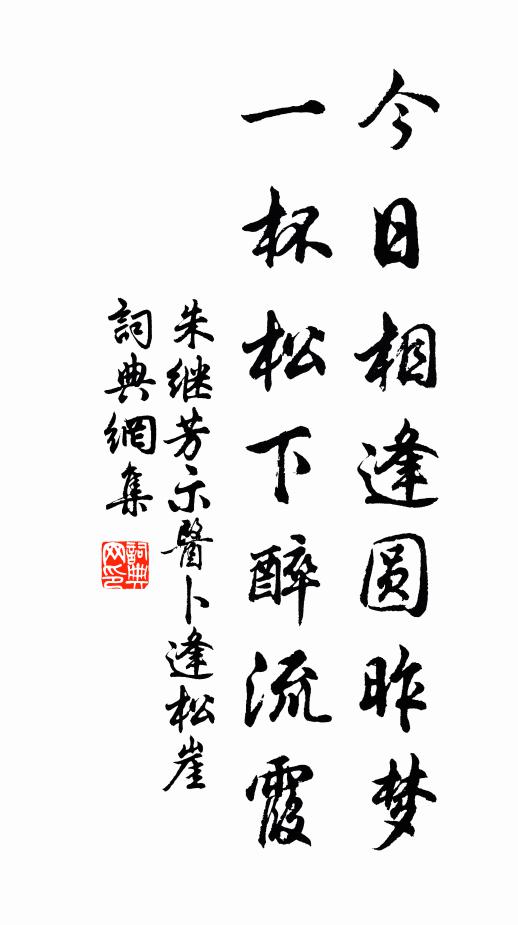 今日相逢圆昨梦
一杯松下醉流霞
朱继芳示醫卜逢松崖
詞典網集
詞典网印